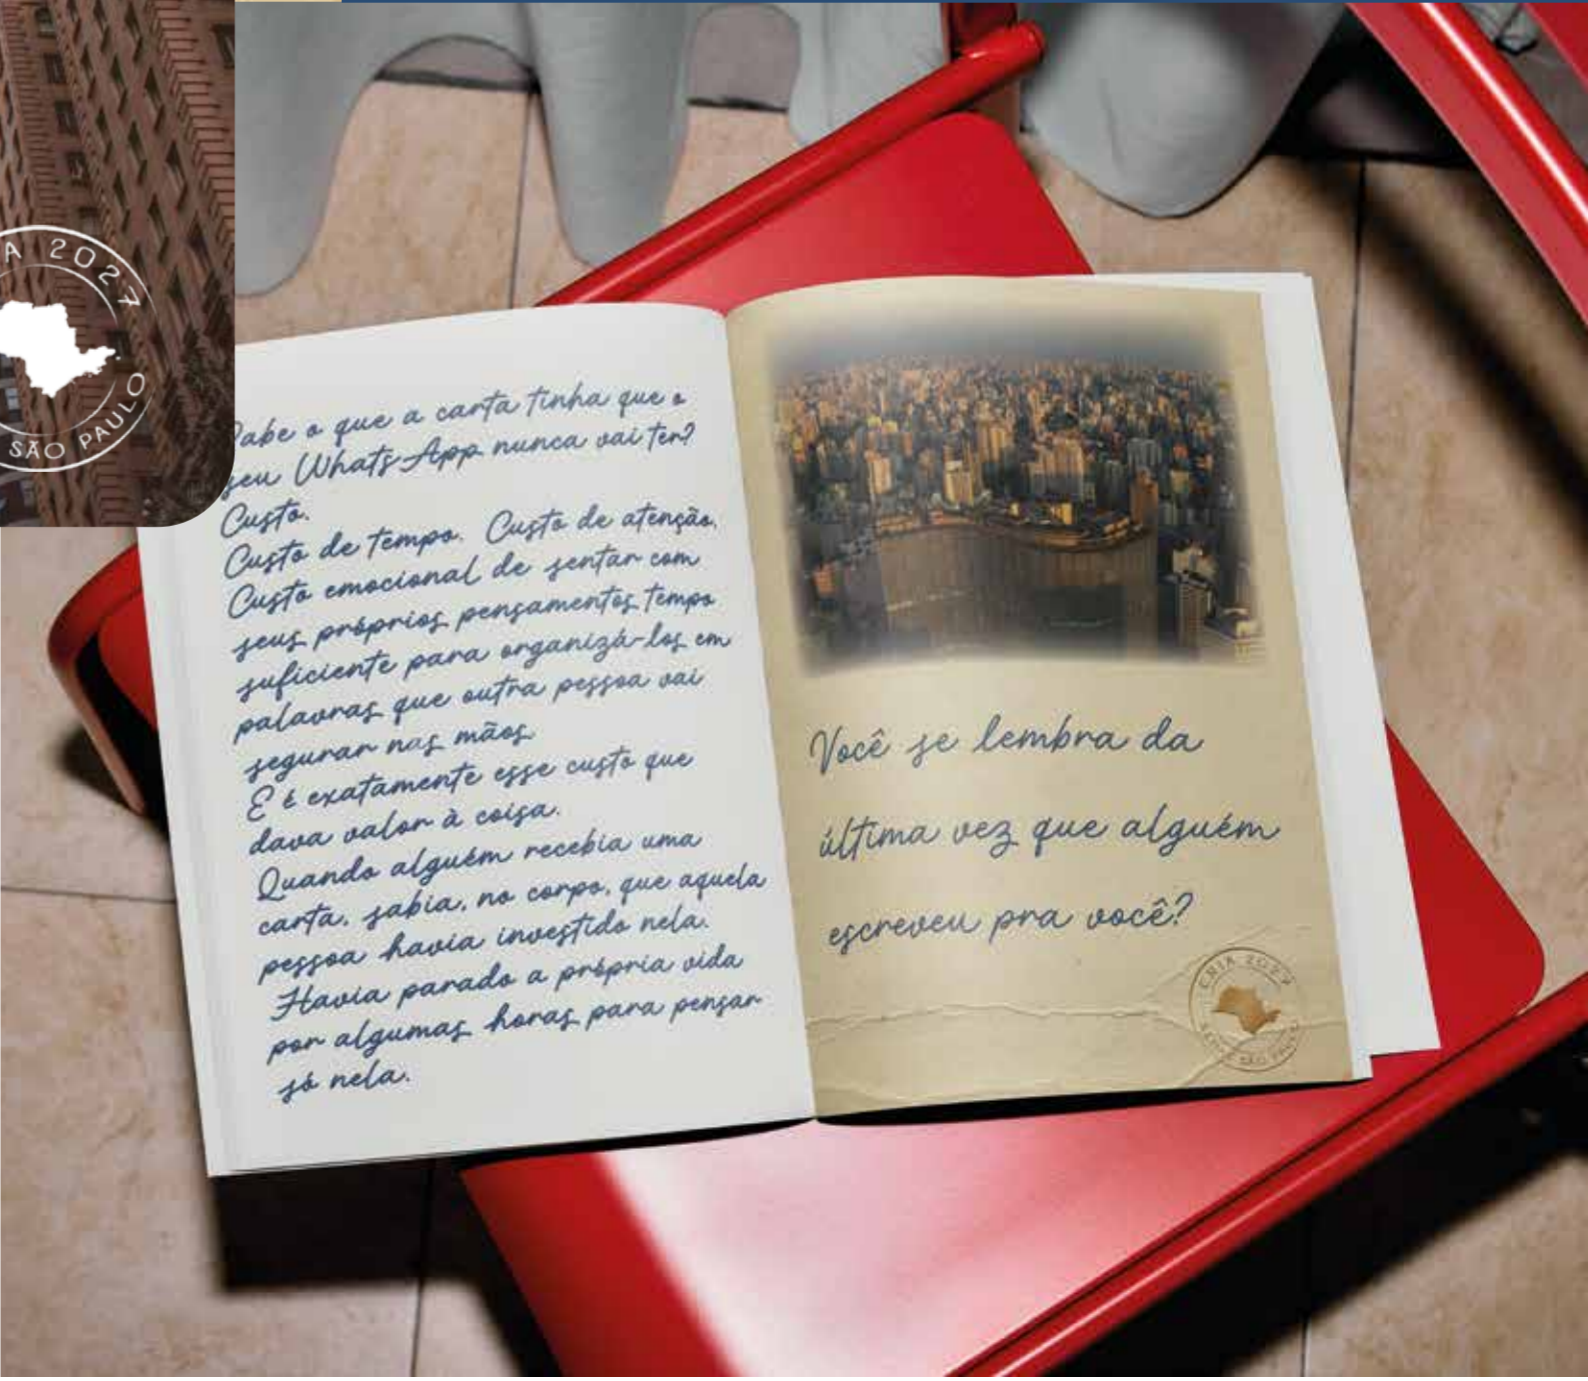 A 2027
SÃO PAULO
Sabe o que a carta tinha que o
seu WhatsApp nunca vai ter?
Custo.
Custo de tempo. Custo de atenção.
Custo emocional de sentar com
seus próprios pensamentos tempo
suficiente para organizá-los em
palavras que outra pessoa vai
segurar nas mãos.
E é exatamente esse custo que
dava valor à coisa.
Quando alguém recebia uma
carta, sabia, no corpo, que aquela
pessoa havia investido nela.
Havia parado a própria vida
por algumas horas para pensar
só nela.
Você se lembra da
última vez que alguém
escreveu pra você?
CRIA 2027
SÃO PAULO